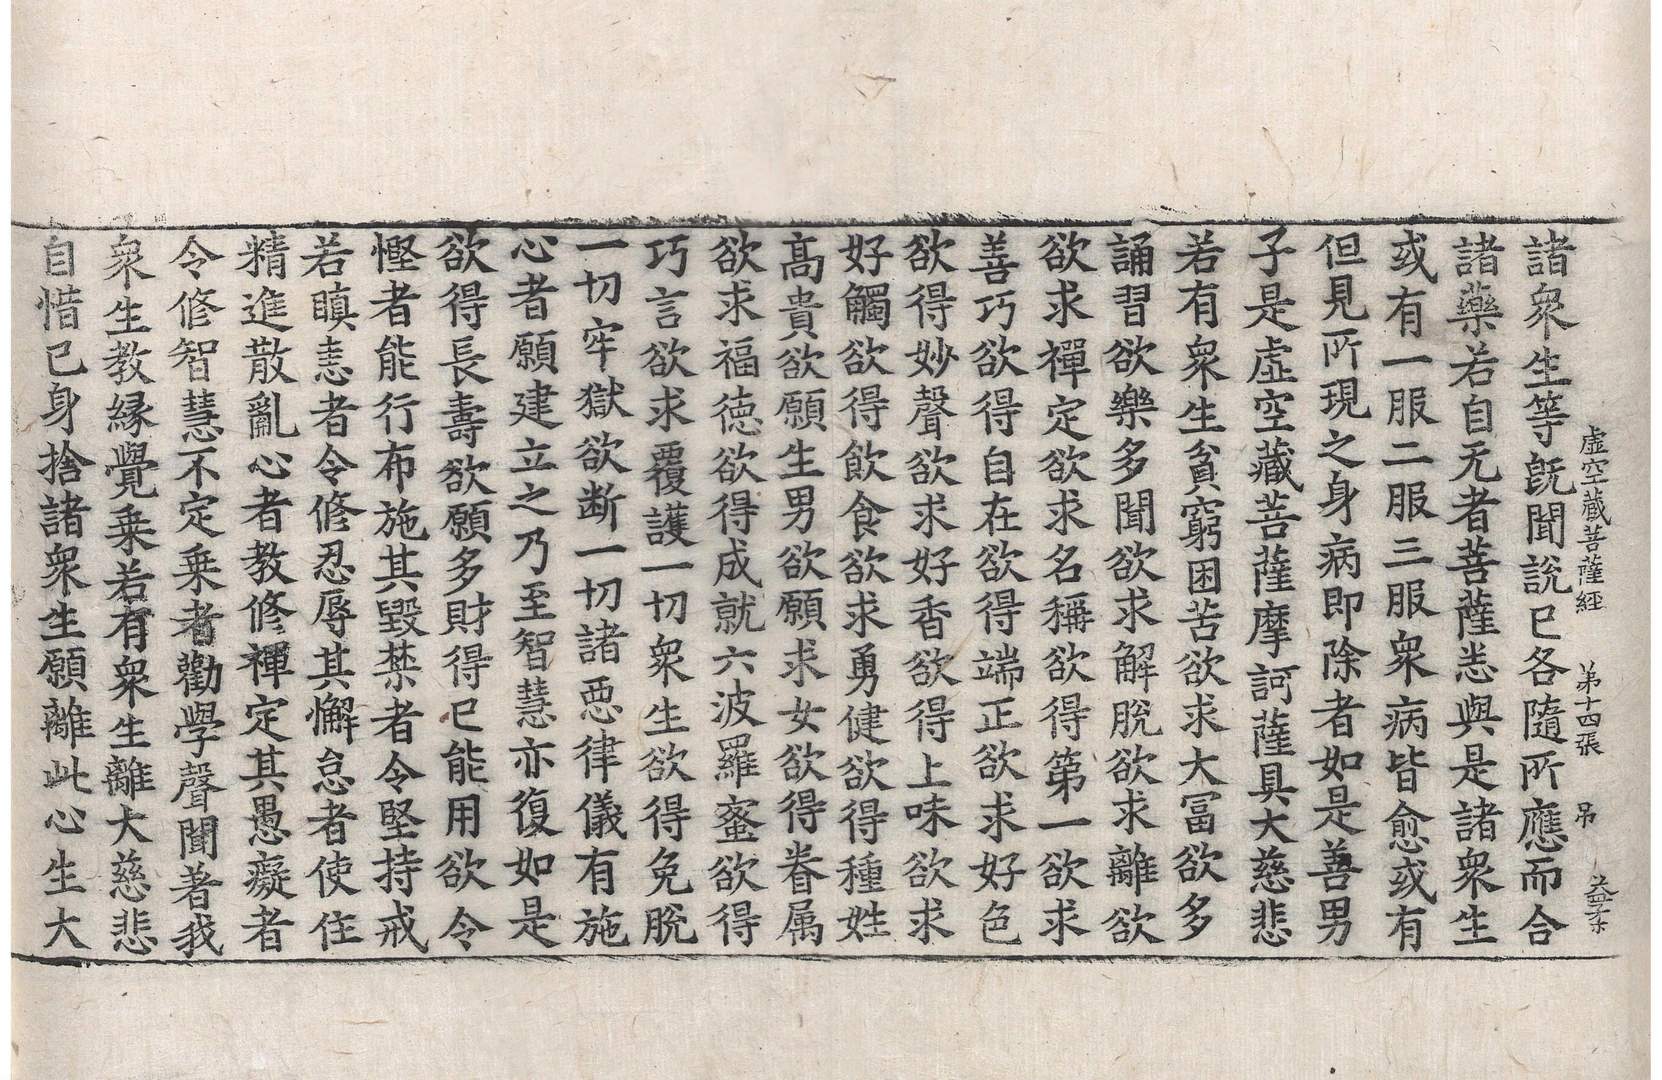 虛空藏菩薩經 第十四張 吊 益﹖
諸衆生等旣聞說已各隨所應而合
諸藥若自无者菩薩悉與是諸衆生
或有一服二服三服衆病皆愈或有
但見所現之身病即除者如是善男
子是虛空藏菩薩摩訶薩具大慈悲
若有衆生貧窮困苦欲求大冨欲多
誦習欲樂多聞欲求解脫欲求離欲
欲求禪定欲求名稱欲得第一欲求
善巧欲得自在欲得端正欲求好色
欲得妙聲欲求好香欲得上味欲求
好觸欲得飲食欲求勇健欲得種姓
髙貴欲願生男欲願求女欲得眷属
欲求福德欲得成就六波羅蜜欲得
巧言欲求覆護一切衆生欲得免脫
一切牢獄欲断一切諸惡律儀有施
心者願建立之乃至智慧亦復如是
欲得長壽欲願多財得已能用欲令
慳者能行布施其毀禁者令堅持戒
若瞋恚者令修忍辱其懈怠者使住
精進散亂心者教修禪定其愚癡者
令修智慧不定乗者勸學聲聞著我
衆生教緣覺乗若有衆生離大慈悲
自惜已身捨諸衆生願離此心生大